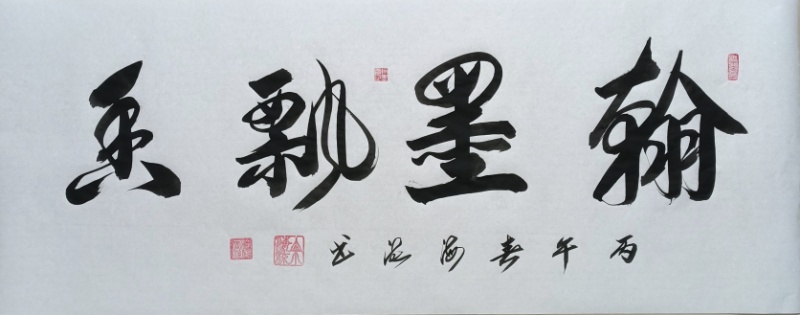 翰墨飘香
丙午春海滨书